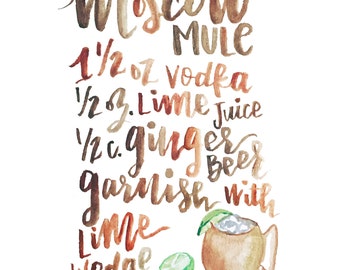 Moscow
MULE
1 1/2 oz Vodka
1/2 oz. Lime Juice
1/2 c. ginger Beer
garnish with
Lime
Wedge